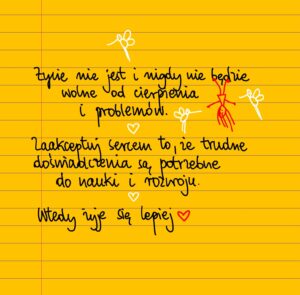 Życie nie jest i nigdy nie będzie
wolne od cierpienia
i problemów.
Zaakceptuj sercem to, że trudne
doświadczenia są potrzebne
do nauki i rozwoju.
Wtedy żyje się lepiej